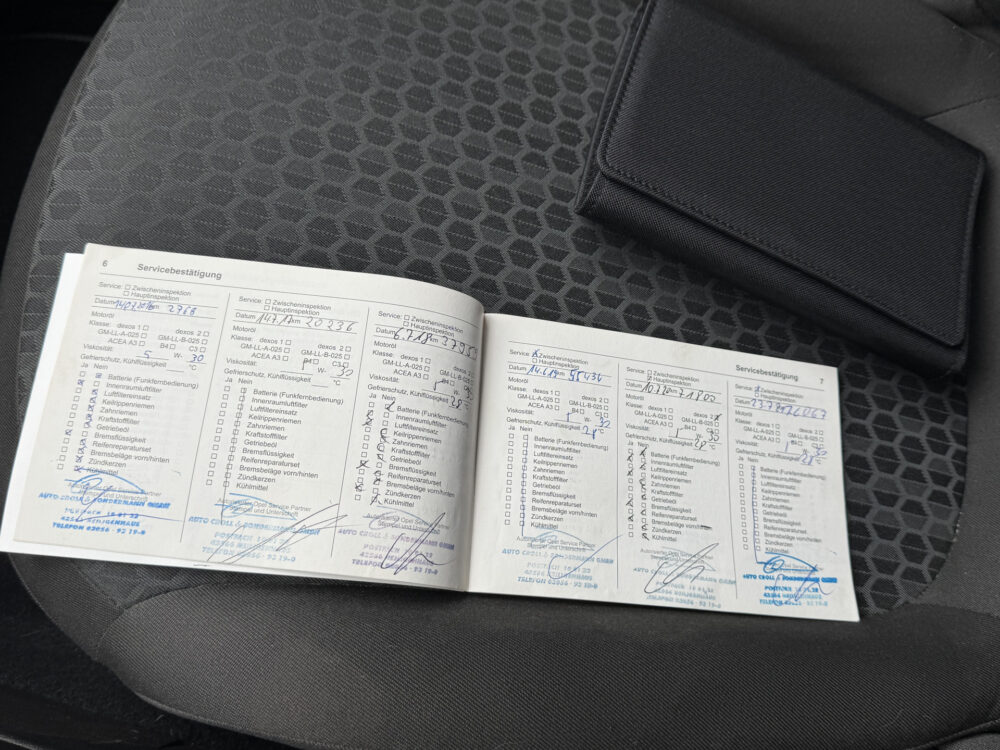 6 Servicebestätigung
Service: ☐ Zwischeninspektion
☐ Hauptinspektion
Datum km 2768
Motoröl
Klasse: dexos 1 ☐ dexos 2 ☐
GM-LL-A-025 ☐ GM-LL-B-025 ☐
ACEA A3 ☐ B4 ☐ C3 ☐
Viskosität: 5 W- 30
Gefrierschutz, Kühlflüssigkeit °C
Ja Nein
Batterie (Funkfernbedienung)
Innenraumluftfilter
Luftfiltereinsatz
Keilrippenriemen
Zahnriemen
Kraftstofffilter
Getriebeöl
Bremsflüssigkeit
Reifenreparaturset
Bremsbeläge vorn/hinten
Zündkerzen
Kühlmittel
Autorisierter Opel Service Partner
Stempel und Unterschrift
AUTO CROLL & SONDERMANN GMBH
POSTFACH 10 01 32
TELEFON 02056 - 92 19-0
Service: ☐ Zwischeninspektion
☐ Hauptinspektion
Datum 14.7.17 km 20236
Motoröl
Klasse: dexos 1 ☐ dexos 2 ☐
GM-LL-A-025 ☐ GM-LL-B-025 ☐
ACEA A3 ☐ B4 ☐ C3 ☐
Viskosität: W- 30
Gefrierschutz, Kühlflüssigkeit °C
Ja Nein
Batterie (Funkfernbedienung)
Innenraumluftfilter
Luftfiltereinsatz
Keilrippenriemen
Zahnriemen
Kraftstofffilter
Getriebeöl
Bremsflüssigkeit
Reifenreparaturset
Bremsbeläge vorn/hinten
Zündkerzen
Kühlmittel
Autorisierter Opel Service Partner
Stempel und Unterschrift
AUTO CROLL & SONDERMANN GMBH
POSTFACH 10 01 32
TELEFON 02056 - 92 19-0
Service: ☐ Zwischeninspektion
☐ Hauptinspektion
Datum 6.7.18 km
Motoröl
Klasse: dexos 1 ☐ dexos 2 ☐
GM-LL-A-025 ☐ GM-LL-B-025 ☐
ACEA A3 ☐ B4 ☐ C3 ☐
Viskosität: W-
Gefrierschutz, Kühlflüssigkeit 28 °C
Ja Nein
Batterie (Funkfernbedienung)
Innenraumluftfilter
Luftfiltereinsatz
Keilrippenriemen
Zahnriemen
Kraftstofffilter
Getriebeöl
Bremsflüssigkeit
Reifenreparaturset
Bremsbeläge vorn/hinten
Zündkerzen
Kühlmittel
Autorisierter Opel Service Partner
Stempel und Unterschrift
AUTO CROLL & SONDERMANN GMBH
POSTFACH 10 01 32
TELEFON 02056 - 92 19-0
Servicebestätigung 7
Service: ☒ Zwischeninspektion
☐ Hauptinspektion
Datum 14.6.19 km 55436
Motoröl
Klasse: dexos 1 ☐ dexos 2 ☐
GM-LL-A-025 ☐ GM-LL-B-025 ☐
ACEA A3 ☐ B4 ☐ C3 ☐
Viskosität: W- 30
Gefrierschutz, Kühlflüssigkeit 28 °C
Ja Nein
Batterie (Funkfernbedienung)
Innenraumluftfilter
Luftfiltereinsatz
Keilrippenriemen
Zahnriemen
Kraftstofffilter
Getriebeöl
Bremsflüssigkeit
Reifenreparaturset
Bremsbeläge vorn/hinten
Zündkerzen
Kühlmittel
Autorisierter Opel Service Partner
Stempel und Unterschrift
AUTO CROLL & SONDERMANN GMBH
POSTFACH 10 01 32
TELEFON 02056 - 92 19-0
Service: ☐ Zwischeninspektion
☒ Hauptinspektion
Datum km 71800
Motoröl
Klasse: dexos 1 ☐ dexos 2 ☒
GM-LL-A-025 ☐ GM-LL-B-025 ☐
ACEA A3 ☐ B4 ☐ C3 ☐
Viskosität: W- 30
Gefrierschutz, Kühlflüssigkeit 28 °C
Ja Nein
Batterie (Funkfernbedienung)
Innenraumluftfilter
Luftfiltereinsatz
Keilrippenriemen
Zahnriemen
Kraftstofffilter
Getriebeöl
Bremsflüssigkeit
Reifenreparaturset
Bremsbeläge vorn/hinten
Zündkerzen
Kühlmittel
Autorisierter Opel Service Partner
Stempel und Unterschrift
AUTO CROLL & SONDERMANN GMBH
POSTFACH 10 01 32
TELEFON 02056 - 92 19-0
Service: ☒ Zwischeninspektion
☐ Hauptinspektion
Datum km
Motoröl
Klasse: dexos 1 ☐ dexos 2 ☐
GM-LL-A-025 ☐ GM-LL-B-025 ☐
ACEA A3 ☐ B4 ☐ C3 ☐
Viskosität: W- 30
Gefrierschutz, Kühlflüssigkeit 28 °C
Ja Nein
Batterie (Funkfernbedienung)
Innenraumluftfilter
Luftfiltereinsatz
Keilrippenriemen
Zahnriemen
Kraftstofffilter
Getriebeöl
Bremsflüssigkeit
Reifenreparaturset
Bremsbeläge vorn/hinten
Zündkerzen
Kühlmittel
AUTO CROLL & SONDERMANN GMBH
POSTFACH 10 01 32
TELEFON 02056 - 92 19-0